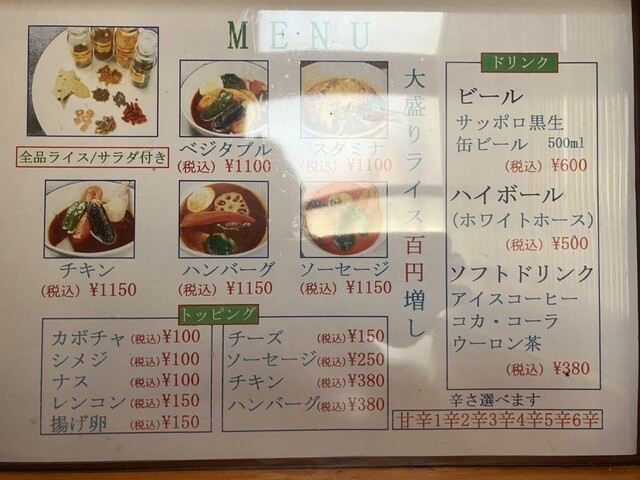 MENU
全品ライス/サラダ付き
ベジタブル
(税込) ¥1100
スタミナ
(税込) ¥1100
チキン
(税込) ¥1150
ハンバーグ
(税込) ¥1150
ソーセージ
(税込) ¥1150
大盛りライス百円増し
トッピング
カボチャ (税込)¥100
シメジ (税込)¥100
ナス (税込)¥100
レンコン(税込)¥150
揚げ卵 (税込)¥150
チーズ (税込)¥150
ソーセージ(税込)¥250
チキン (税込)¥380
ハンバーグ(税込)¥380
ドリンク
ビール
サッポロ黒生
缶ビール 500ml
(税込) ¥600
ハイボール
(ホワイトホース)
(税込) ¥500
ソフトドリンク
アイスコーヒー
コカ・コーラ
ウーロン茶
(税込) ¥380
辛さ選べます
甘辛1辛2辛3辛4辛5辛6辛